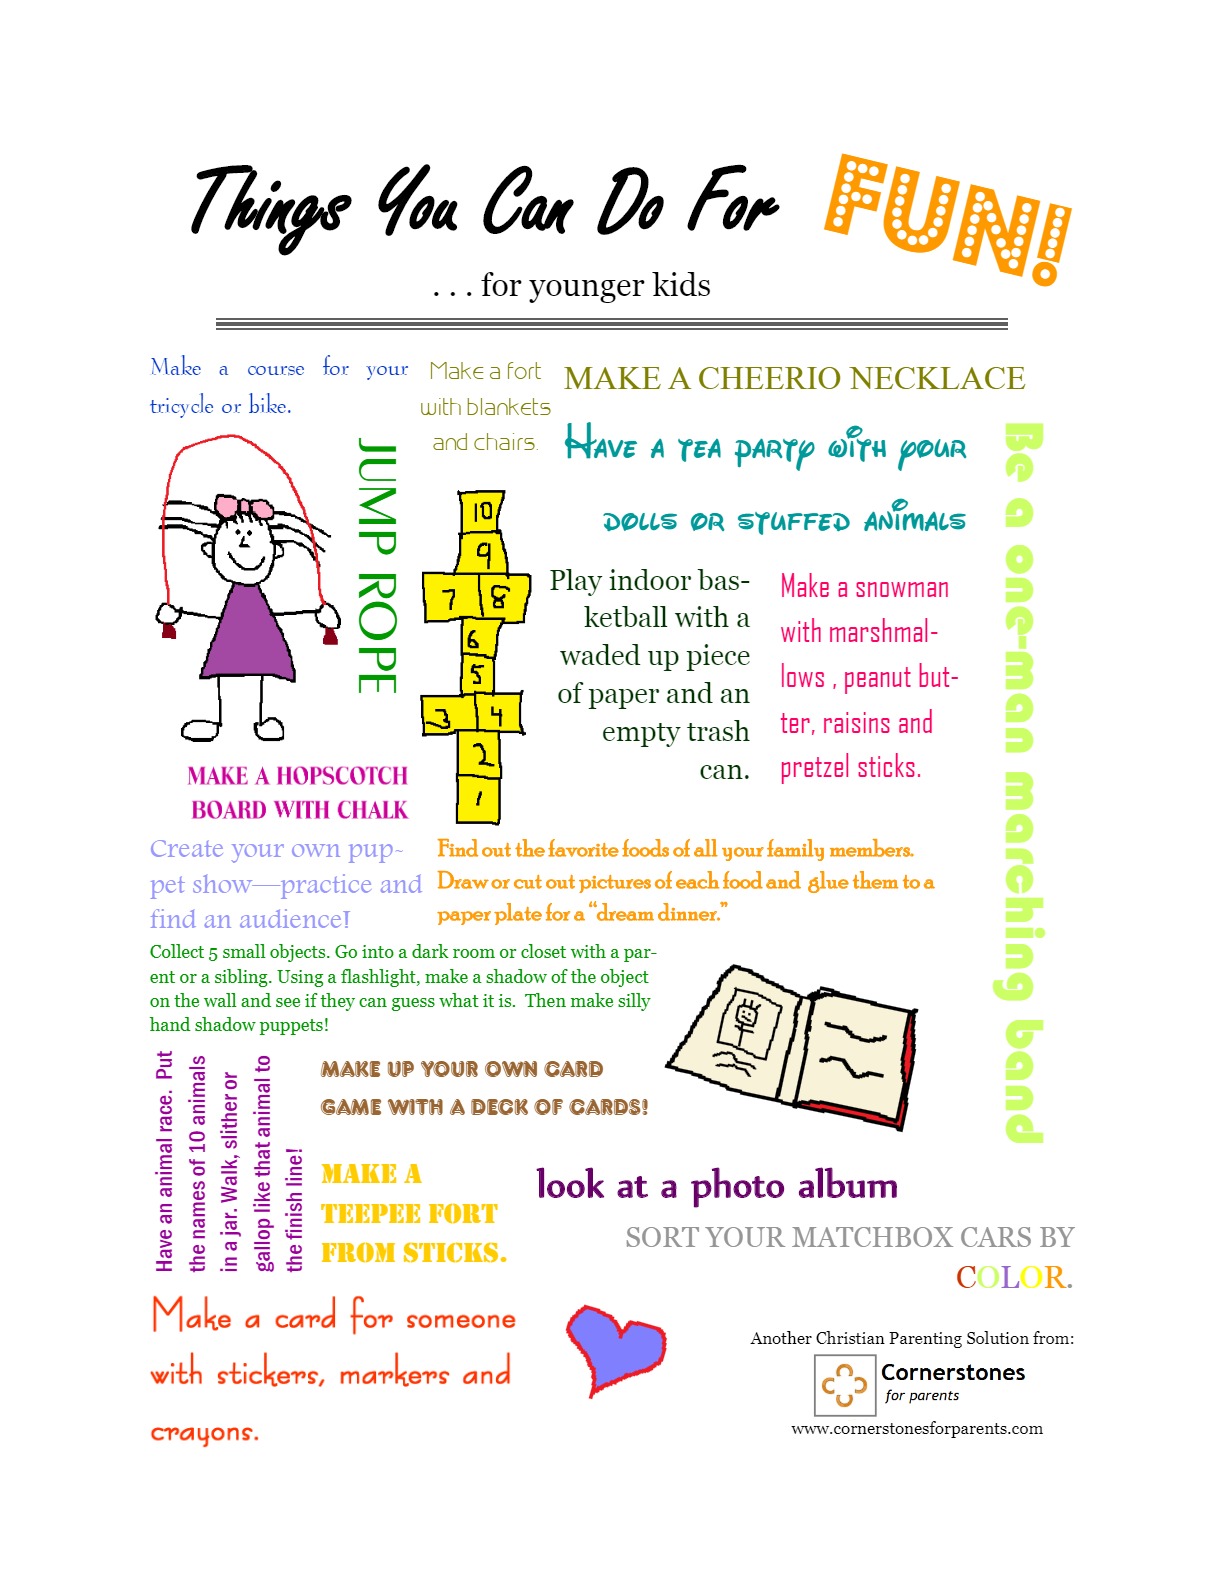 Things You Can Do For FUN!
. . . for younger kids
Make a course for your
tricycle or bike.
Make a fort
with blankets
and chairs.
MAKE A CHEERIO NECKLACE
HAVE A TEA PARTY WITH YOUR
DOLLS OR STUFFED ANIMALS
JUMP ROPE
10
9
7 8
6
5
3 4
2
1
Play indoor bas-
ketball with a
waded up piece
of paper and an
empty trash
can.
Make a snowman
with marshmal-
lows , peanut but-
ter, raisins and
pretzel sticks.
Be a one-man marching band
MAKE A HOPSCOTCH
BOARD WITH CHALK
Create your own pup-
pet show—practice and
find an audience!
Find out the favorite foods of all your family members.
Draw or cut out pictures of each food and glue them to a
paper plate for a “dream dinner.”
Collect 5 small objects. Go into a dark room or closet with a par-
ent or a sibling. Using a flashlight, make a shadow of the object
on the wall and see if they can guess what it is. Then make silly
hand shadow puppets!
Have an animal race. Put
the names of 10 animals
in a jar. Walk, slither or
gallop like that animal to
the finish line!
MAKE UP YOUR OWN CARD
GAME WITH A DECK OF CARDS!
MAKE A
TEEPEE FORT
FROM STICKS.
look at a photo album
SORT YOUR MATCHBOX CARS BY
COLOR.
Make a card for someone
with stickers, markers and
crayons.
Another Christian Parenting Solution from:
Cornerstones
for parents
www.cornerstonesforparents.com